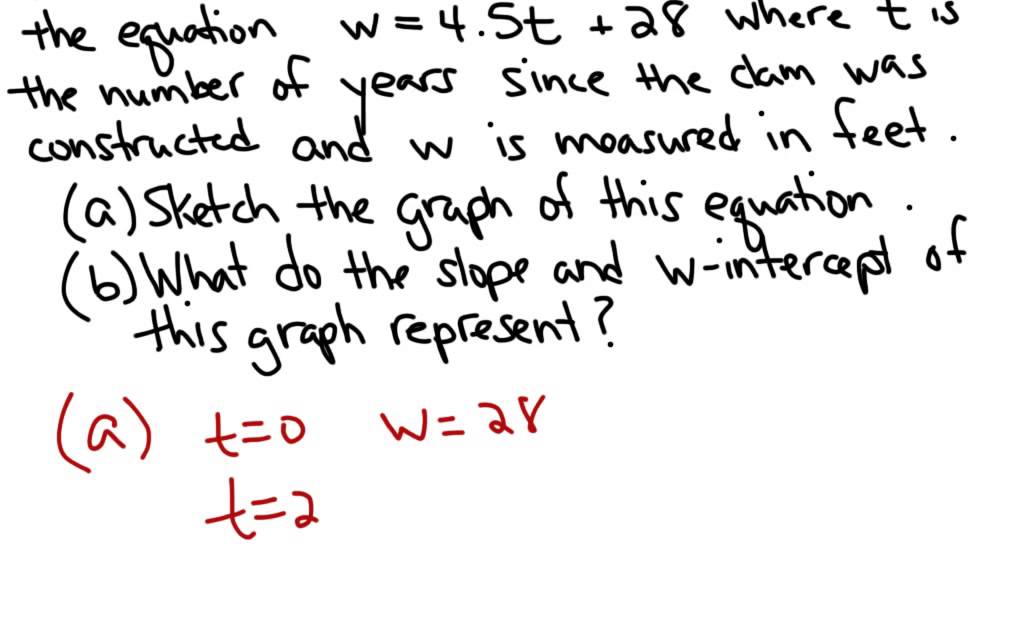 the equation w = 4.5t + 28 where t is
the number of years since the dam was
constructed and w is measured in feet.
(a) Sketch the graph of this equation.
(b) What do the slope and w-intercept of
this graph represent?
(a) t=0 w=28
t=2